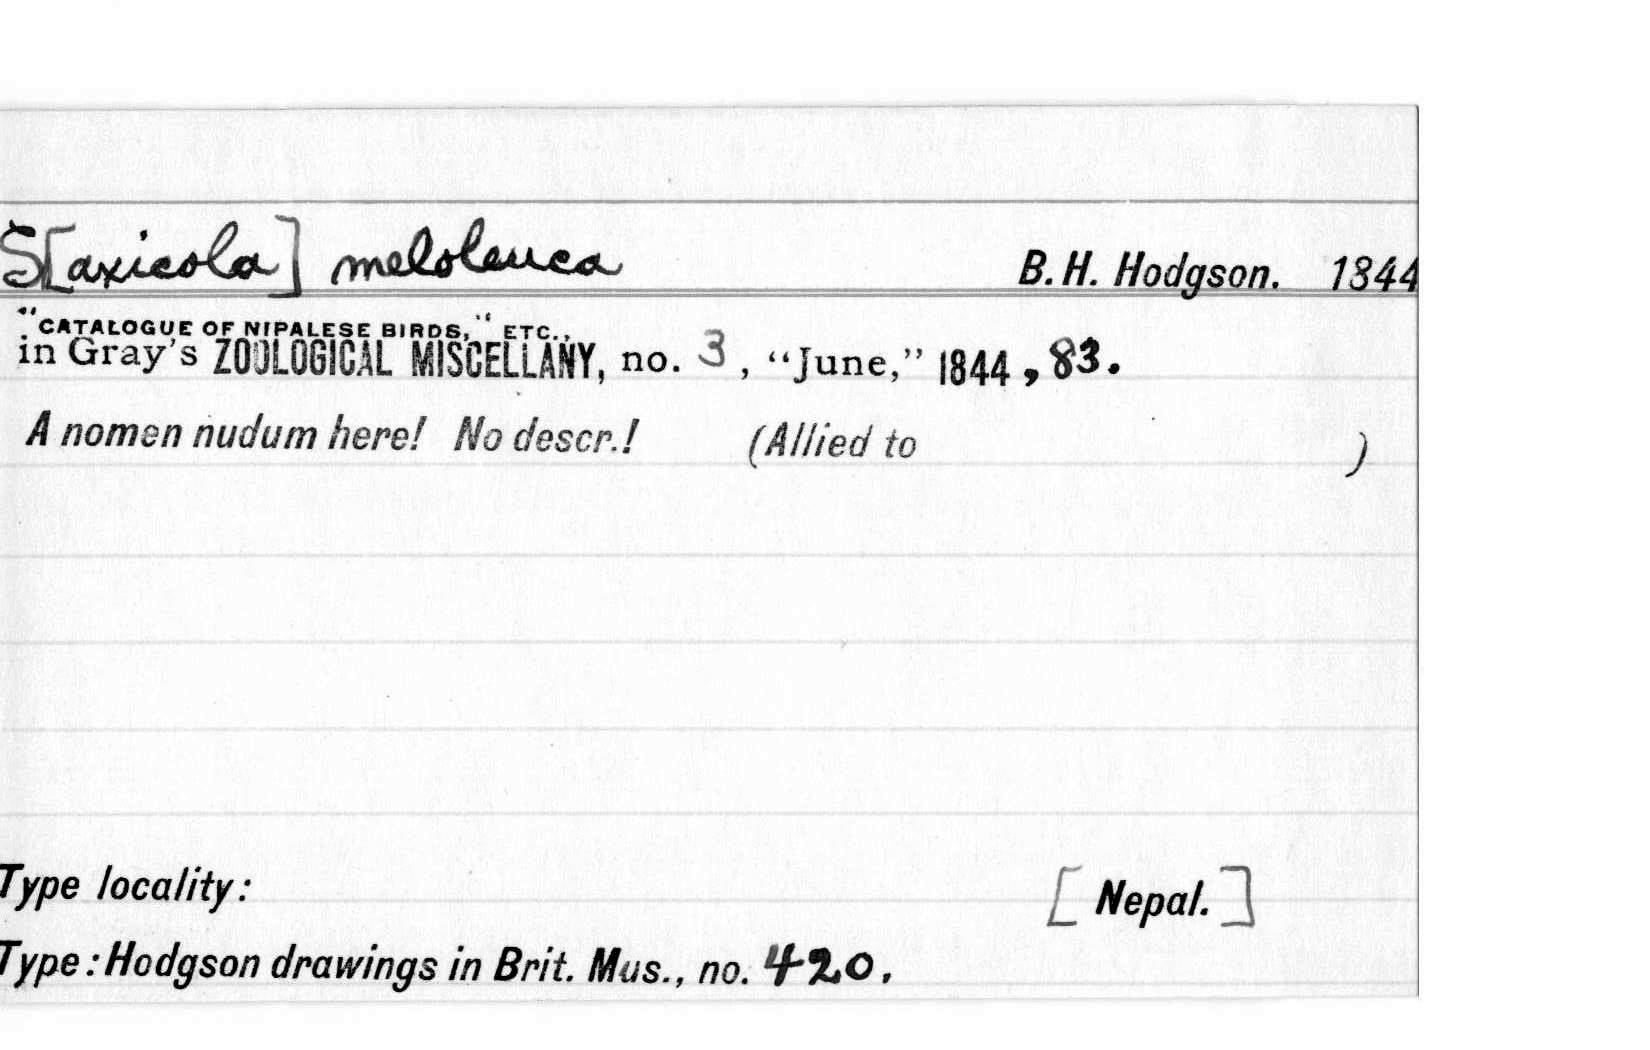 S[axicola] meloleuca B. H. Hodgson. 1844
"CATALOGUE OF NIPALESE BIRDS," ETC.,
in Gray's ZOOLOGICAL MISCELLANY, no. 3, "June," 1844, 83.
A nomen nudum here! No descr.! (Allied to )
Type locality: [Nepal.]
Type: Hodgson drawings in Brit. Mus., no. 420.